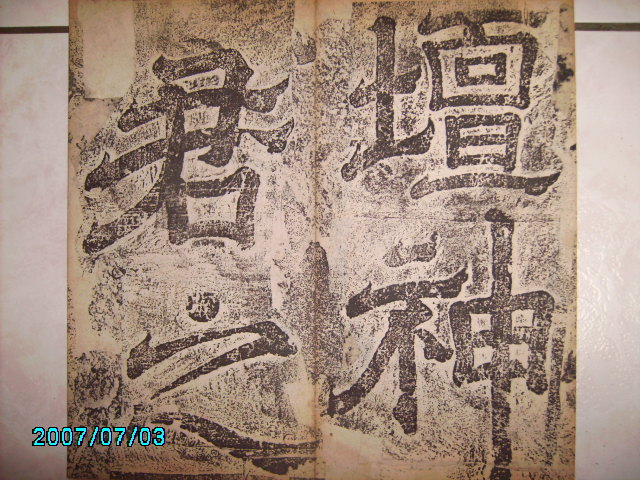 壇神
君之
2007/07/03